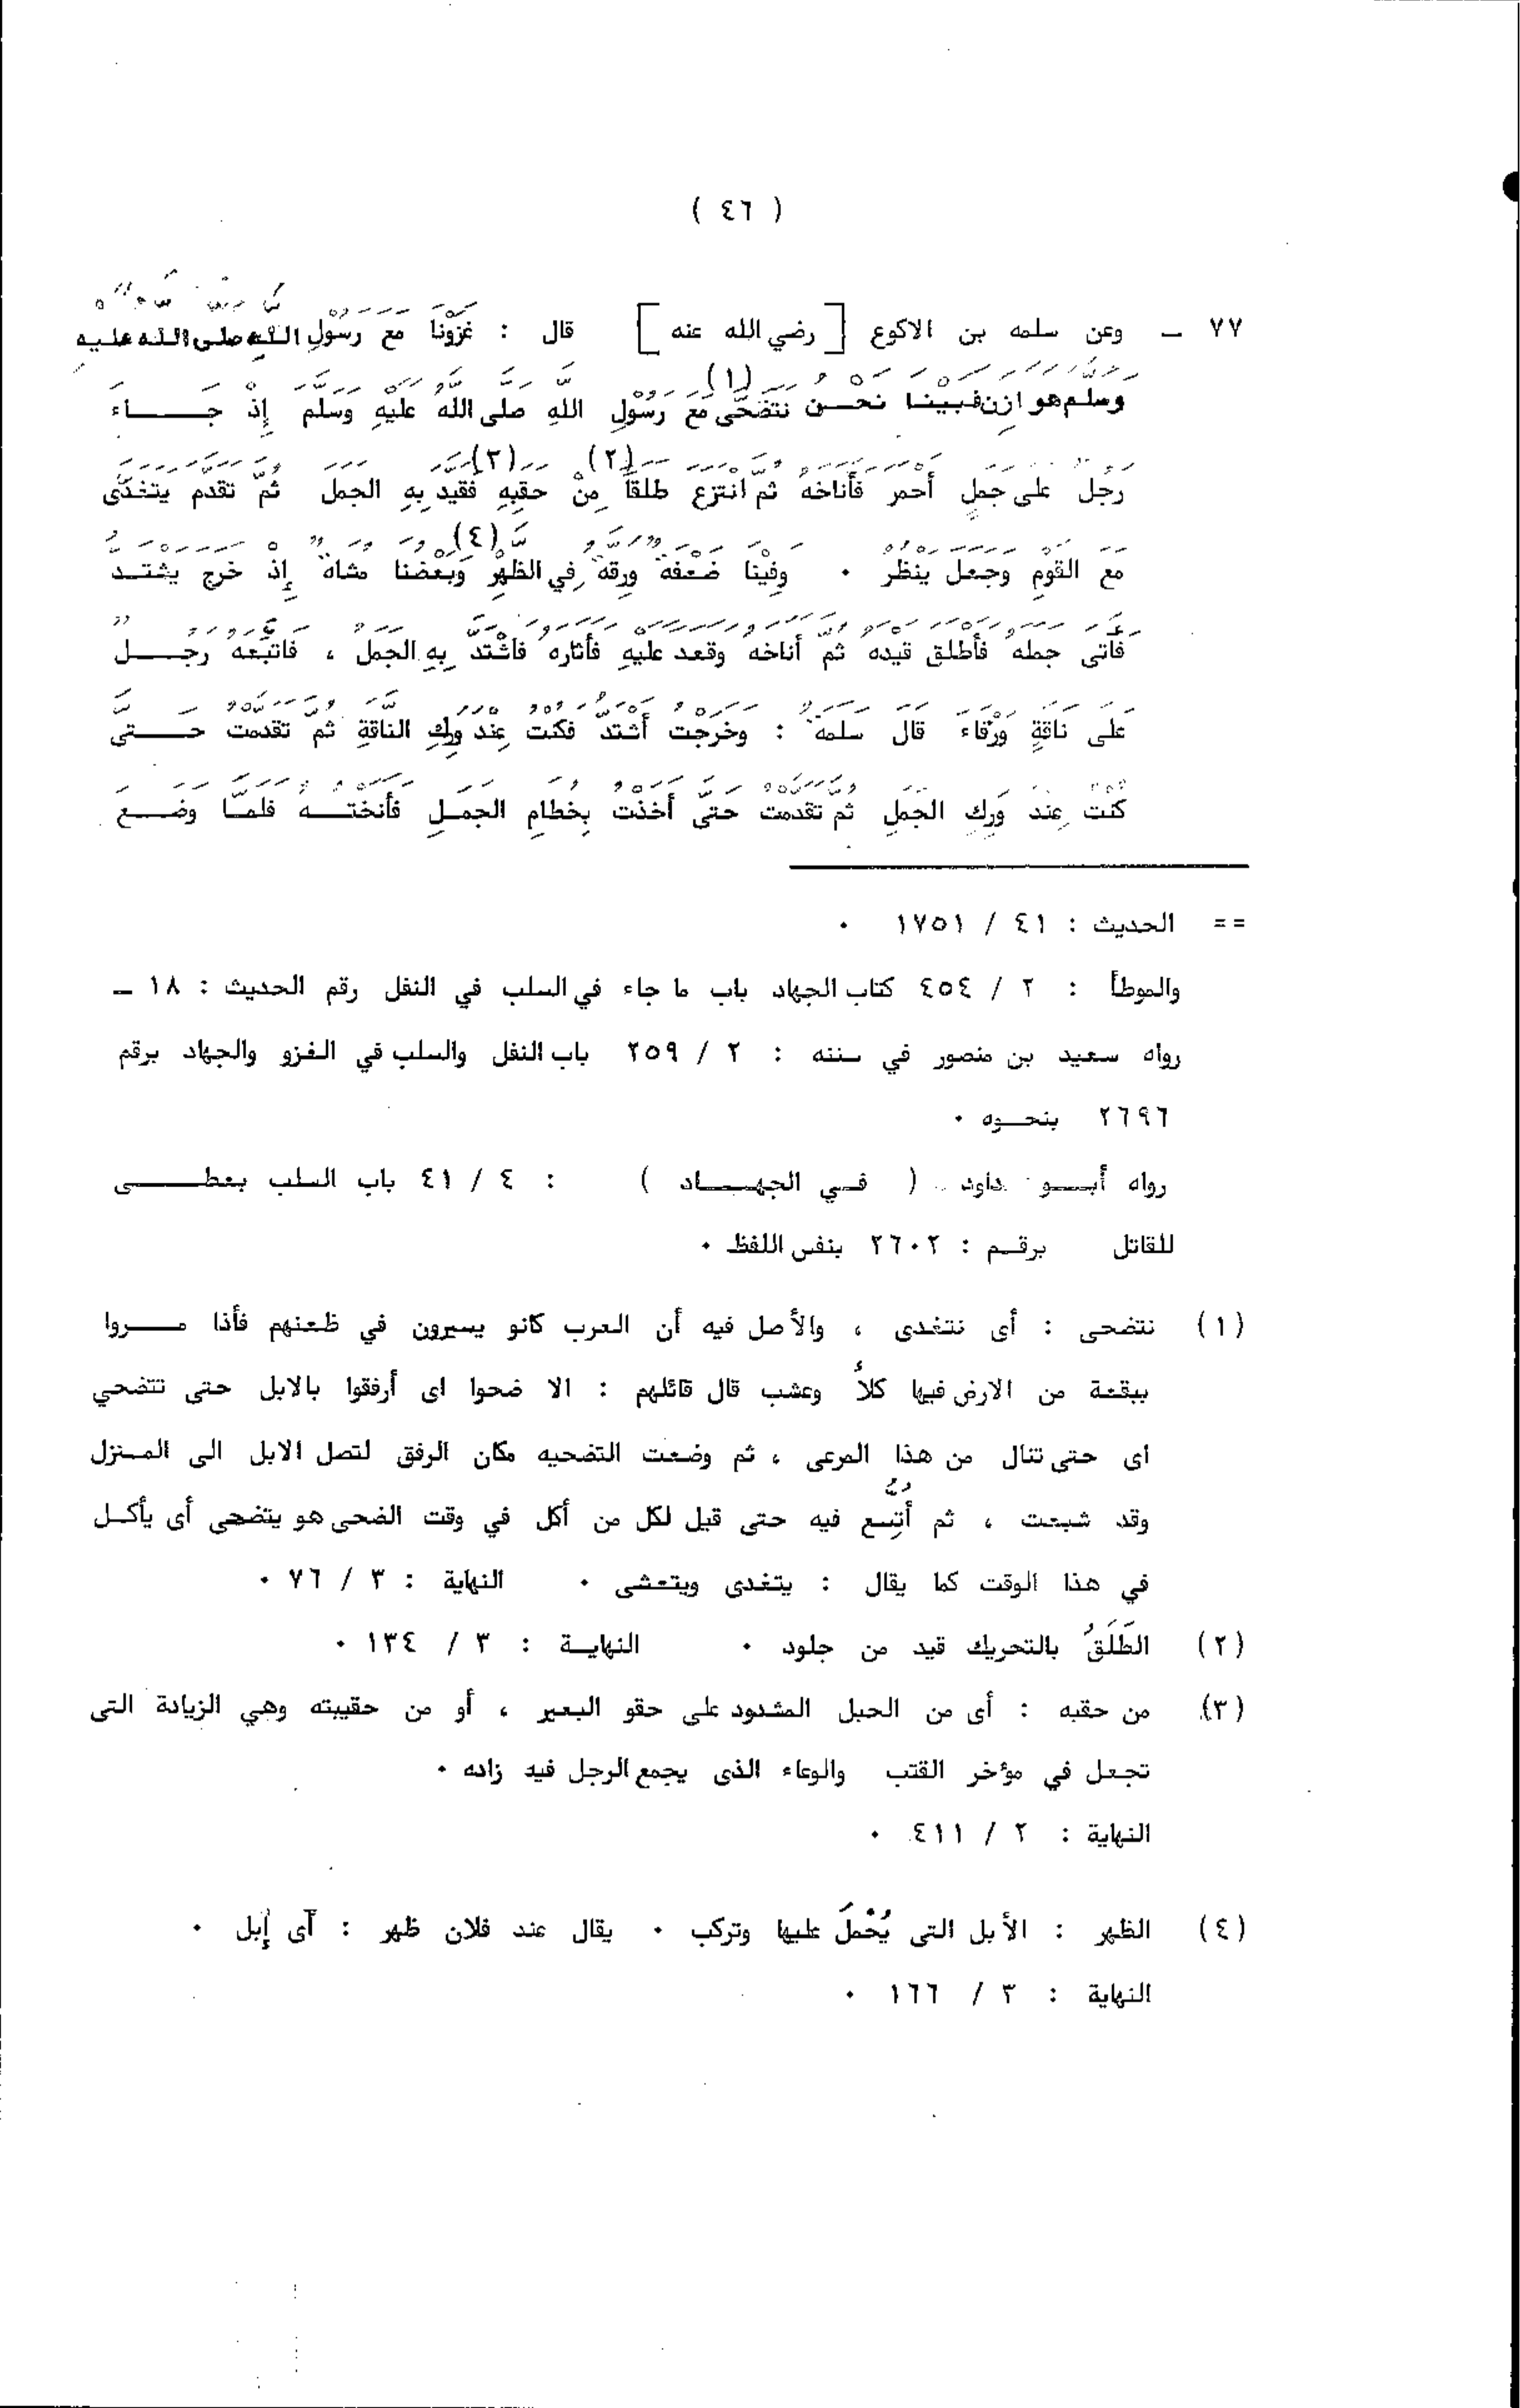 ( ٤٦ )
٧٧ ــ وعن سلمه بن الاكوع [ رضي الله عنه ] قال : غزونا مع رسول الله صلى الله عليه
وسلم هوازن فبينا نحن نتضحى (١) مع رسول الله صلى الله عليه وسلم إذ جاء
رجل على جمل أحمر فأناخه ثم انتزع طلقاً (٢) من حقبه (٣) فقيد به الجمل ثم تقدم يتغدى
مع القوم وجعل ينظر ٠ وفينا ضعفة ورقة في الظهر (٤) وبعضنا مشاة إذ خرج يشتد
فأتى جمله فأطلق قيده ثم أناخه وقعد عليه فأثاره فاشتد به الجمل ، فاتبعه رجل
على ناقة ورقاء قال سلمة : وخرجت أشتد فكنت عند ورك الناقة ثم تقدمت حتى
كنت عند ورك الجمل ثم تقدمت حتى أخذت بخطام الجمل فأنخته فلما وضع
== الحديث : ٤١ / ١٧٥١ ٠
والموطأ : ٢ / ٤٥٤ كتاب الجهاد باب ما جاء في السلب في النفل رقم الحديث : ١٨ ــ
رواه سعيد بن منصور في سننه : ٢ / ٢٥٩ باب النفل والسلب في الغزو والجهاد برقم
٢٦٩٦ بنحوه ٠
رواه أبو داود ( في الجهاد ) : ٤ / ٤١ باب السلب بعطى
للقاتل برقم : ٢٦٠٢ بنفس اللفظ ٠
(١) نتضحى : أى نتغدى ، والأصل فيه أن العرب كانو يسيرون في ظعنهم فأذا مروا
ببقعة من الارض فيها كلأ وعشب قال قائلهم : الا ضحوا اى أرفقوا بالابل حتى تتضحي
اى حتى تنال من هذا المرعى ، ثم وضعت التضحيه مكان الرفق لتصل الابل الى المنزل
وقد شبعت ، ثم أتسع فيه حتى قيل لكل من أكل في وقت الضحى هو يتضحى أى يأكل
في هذا الوقت كما يقال : يتغدى ويتعشى ٠ النهاية : ٣ / ٧٦ ٠
(٢) الطَلَقُ بالتحريك قيد من جلود ٠ النهاية : ٣ / ١٣٤ ٠
(٣) من حقبه : أى من الحبل المشدود على حقو البعير ، أو من حقيبته وهي الزيادة التى
تجعل في مؤخر القتب والوعاء الذى يجمع الرجل فيه زاده ٠
النهاية : ٢ / ٤١١ ٠
(٤) الظهر : الأبل التى يُحْملَ عليها وتركب ٠ يقال عند فلان ظهر : آى إبل ٠
النهاية : ٣ / ١٦٦ ٠